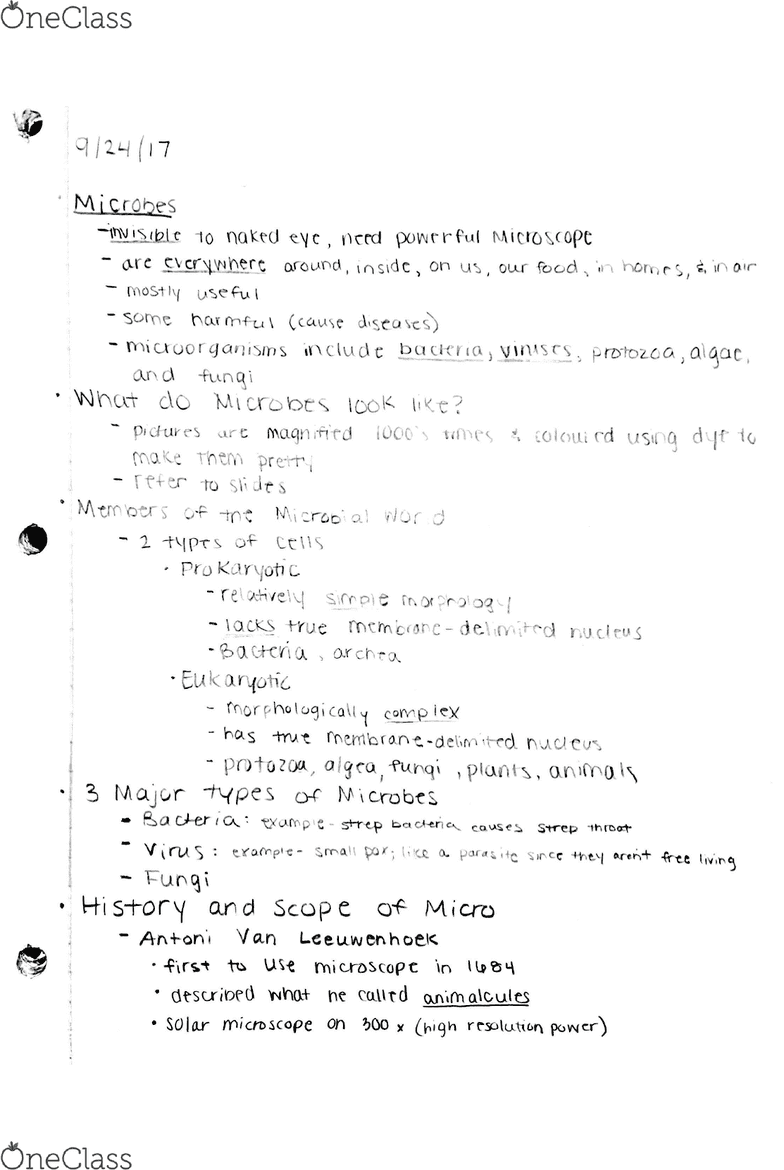 OneClass
9/24/17
· Microbes
- invisible to naked eye, need powerful Microscope
- are everywhere around, inside, on us, our food, in homes, & in air
- mostly useful
- some harmful (cause diseases)
- microorganisms include bacteria, viruses, protozoa, algae,
and fungi
· What do Microbes look like?
- pictures are magnified 1000's times & colouird using dye to
make them pretty
- refer to slides
· Members of the Microbial World
- 2 types of cells
· Prokaryotic
- relatively simple morphology
- lacks true membrane-delimited nucleus
- Bacteria, archea
· Eukaryotic
- morphologically complex
- has true membrane-delimited nucleus
- protozoa, algea, fungi, plants, animals
· 3 Major types of Microbes
- Bacteria: example - strep bacteria causes strep throat
- Virus: example - small pox; like a parasite since they arent free living
- Fungi
· History and Scope of Micro
- Antoni Van Leeuwenhoek
· first to use microscope in 1684
· described what he called animalcules
· solar microscope on 300 x (high resolution power)
OneClass